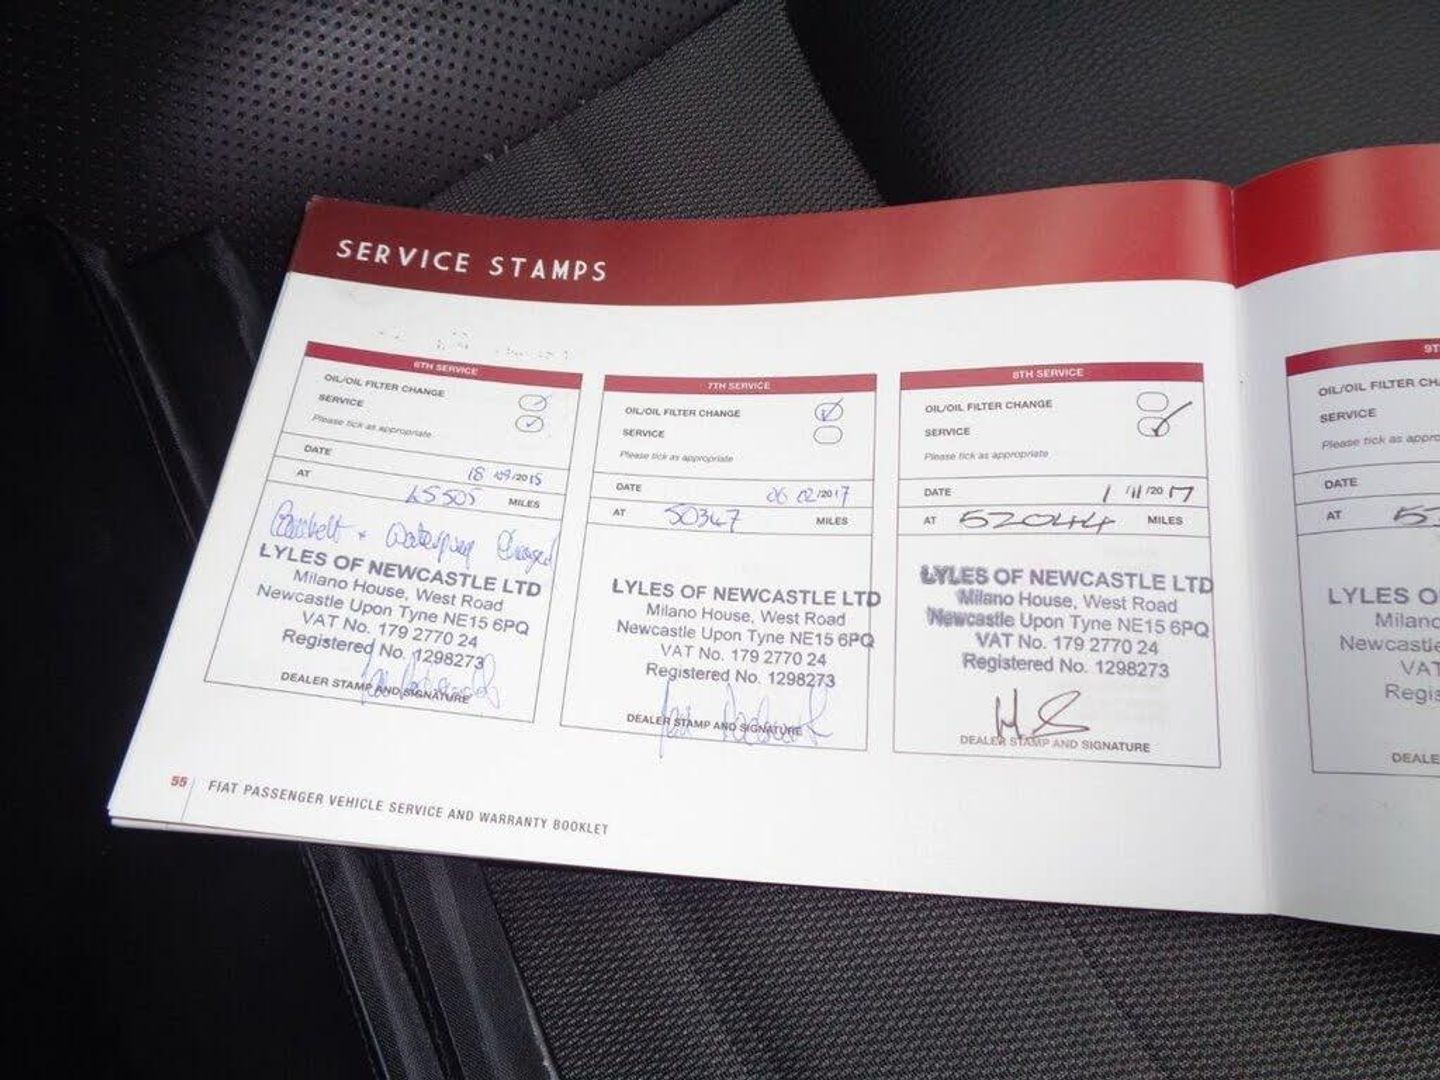 SERVICE STAMPS
6TH SERVICE
OIL/OIL FILTER CHANGE
SERVICE
Please tick as appropriate
DATE 18 /09/2015
AT 45505 MILES
Cambelt + Waterpump Changed
LYLES OF NEWCASTLE LTD
Milano House, West Road
Newcastle Upon Tyne NE15 6PQ
VAT No. 179 2770 24
Registered No. 1298273
DEALER STAMP AND SIGNATURE
7TH SERVICE
OIL/OIL FILTER CHANGE
SERVICE
Please tick as appropriate
DATE 06 /02/2017
AT 50347 MILES
LYLES OF NEWCASTLE LTD
Milano House, West Road
Newcastle Upon Tyne NE15 6PQ
VAT No. 179 2770 24
Registered No. 1298273
DEALER STAMP AND SIGNATURE
8TH SERVICE
OIL/OIL FILTER CHANGE
SERVICE
Please tick as appropriate
DATE 1 /11/2017
AT 52044 MILES
LYLES OF NEWCASTLE LTD
Milano House, West Road
Newcastle Upon Tyne NE15 6PQ
VAT No. 179 2770 24
Registered No. 1298273
HS
DEALER STAMP AND SIGNATURE
55 FIAT PASSENGER VEHICLE SERVICE AND WARRANTY BOOKLET
9T
OIL/OIL FILTER CH
SERVICE
Please tick as appro
DATE
AT
LYLES O
Milano
Newcastle
VAT
Regis
DEALE